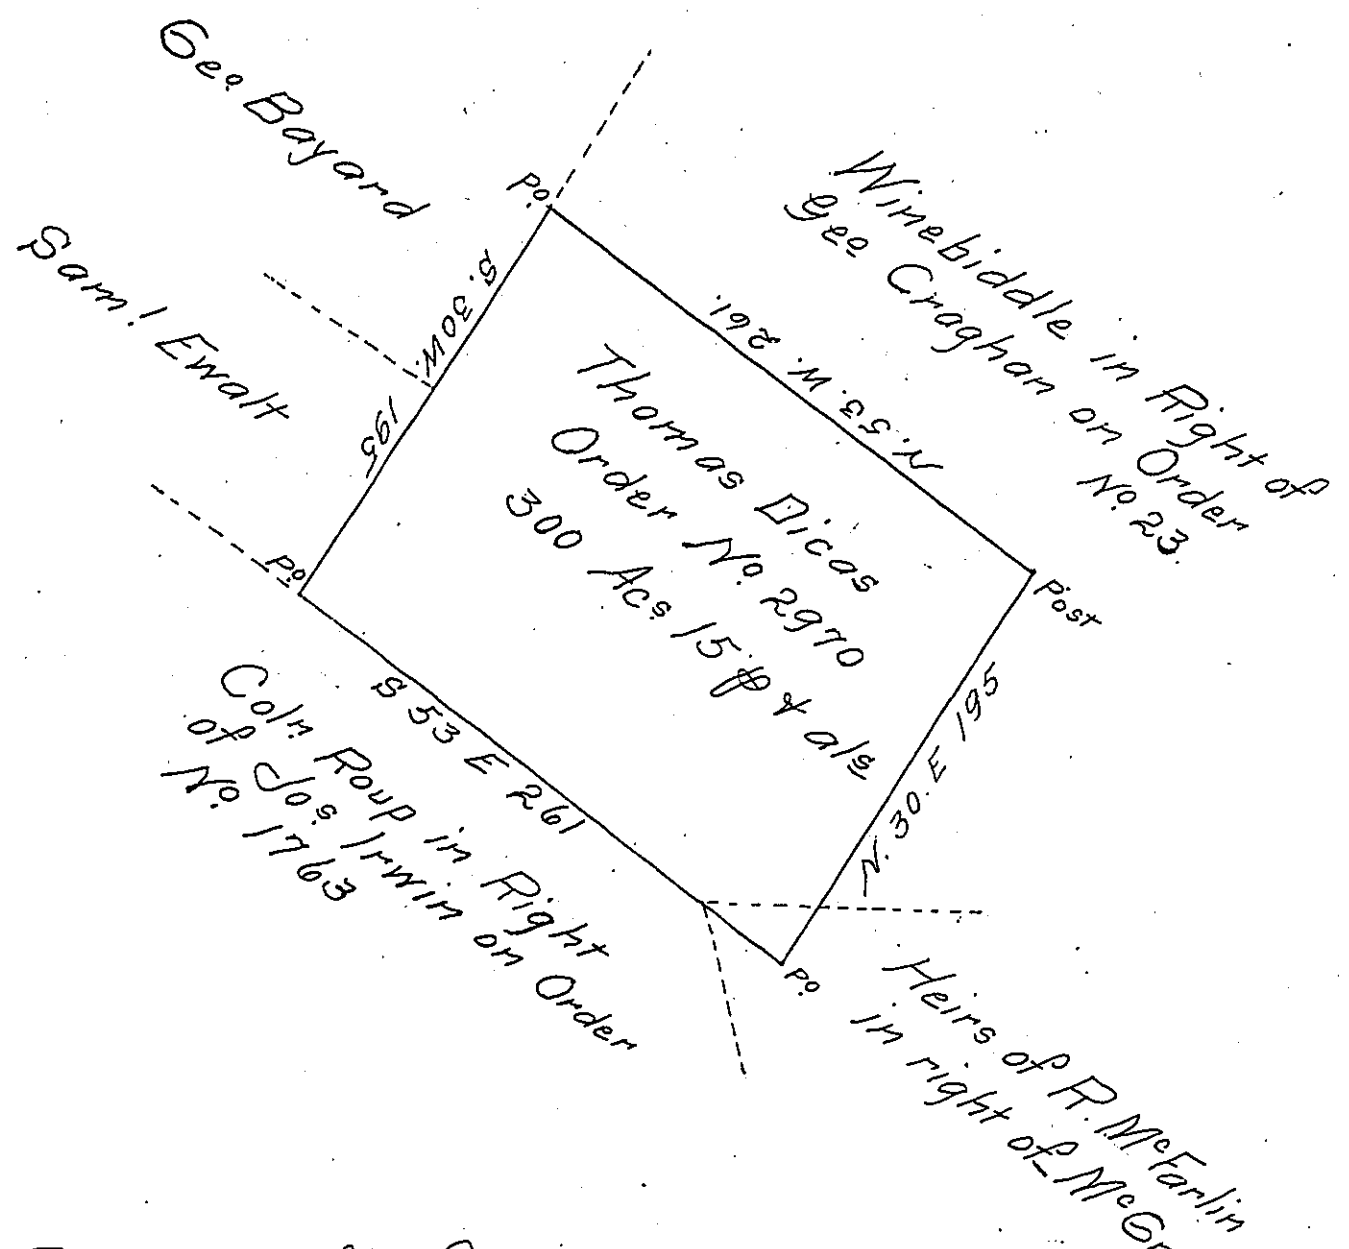 Geo Bayard
Sam! Ewalt
Po.
S. 30 W. 195
Winebiddle in Right of
Geo Craghan on Order
No. 23.
N. 53. W. 261.
Thomas Dicas
Order No. 2970
300 Acs 15 p & als
Post
Po
S 53 E 261
N. 30. E 195
Coln Roup in Right
of Jos Irwin on Order
No. 1763
Po
Heirs of R. McFarlin
in right of McGr